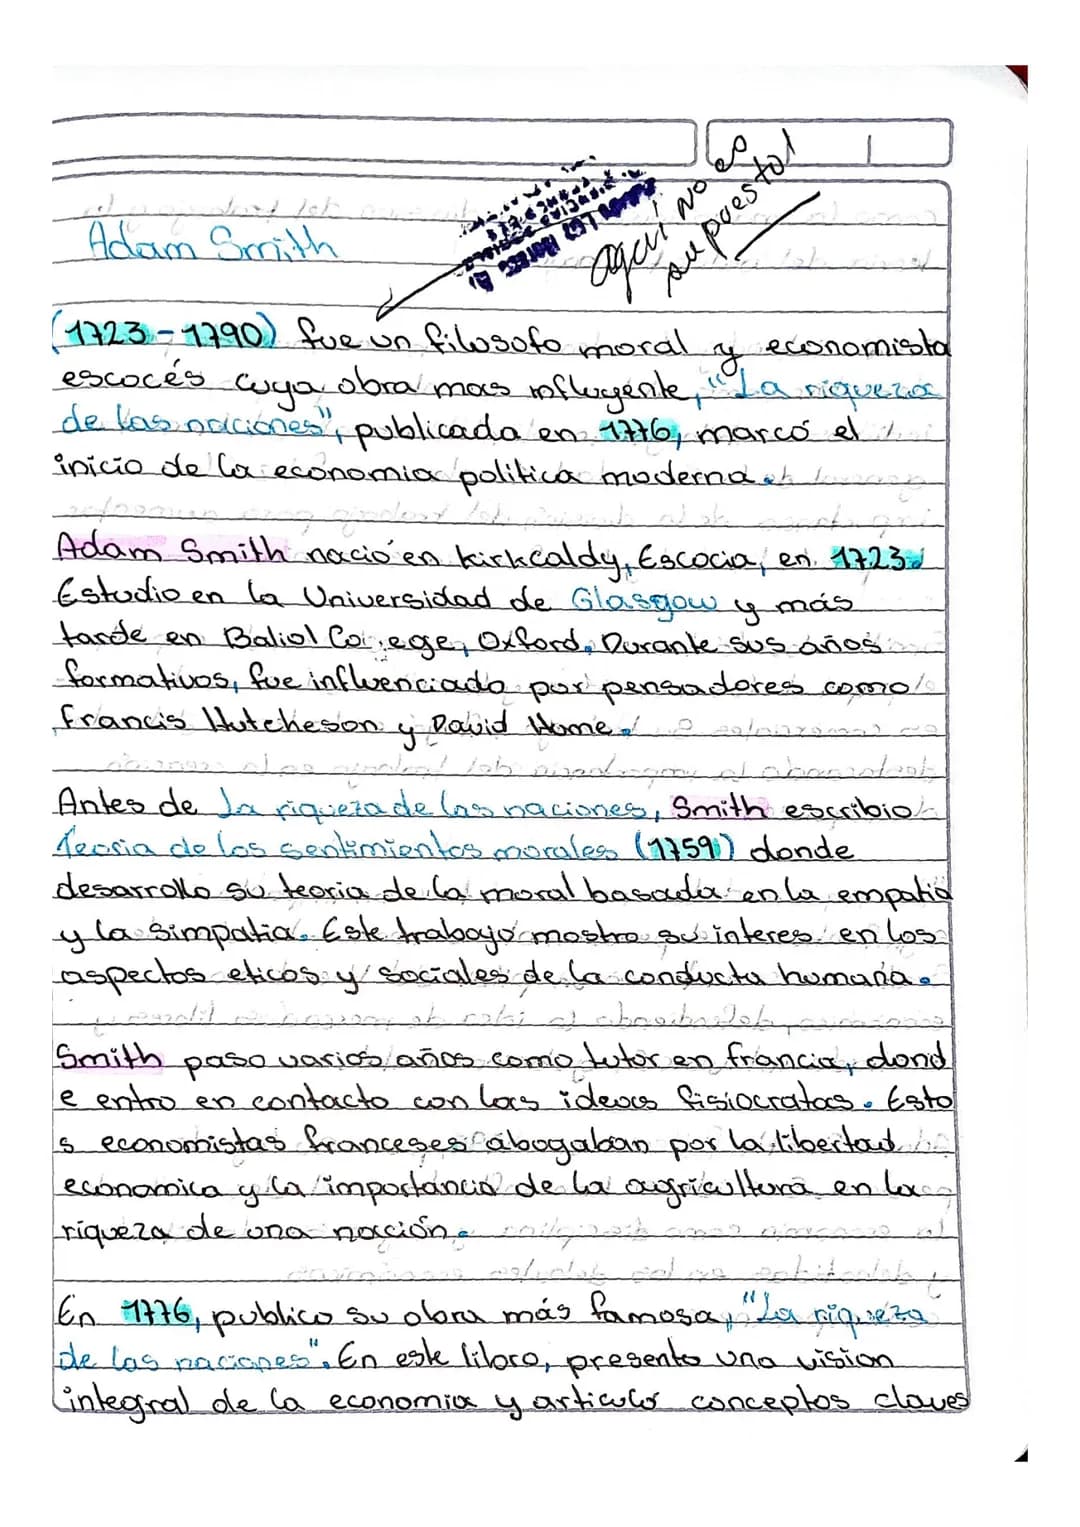 aquí no es
supuesto!
Adam Smith
(1723-1790) fue un filosofo moral y economista
escocés cuya obra mas influyente, "La riqueza
de las naciones", publicada en 1776, marcó el
inicio de la economia politica moderna.
Adam Smith nació en kirkcaldy, Escocia, en 1723.
Estudio en la Universidad de Glasgow y más
tarde en Baliol College, Oxford. Durante sus años
formativos, fue influenciado por pensadores como
Francis Hutcheson y David Hume.
Antes de La riqueza de las naciones, Smith escribio
Teoria de los sentimientos morales (1759) donde
desarrollo su teoria de la moral basada en la empatia
y la simpatia. Este trabajo mostro su interes en los
aspectos eticos y sociales de la conducta humana.
Smith paso varios años como tutor en francia, dond
e entro en contacto con las ideas fisiocratas. Esto
s economistas franceses abogaban por la libertad
economica y la importancia de la agricultura en la
riqueza de una nación.
En 1776, publico su obra más famosa, "La riqueza
de las naciones". En este libro, presento una vision
integral de la economia y articulo conceptos claves